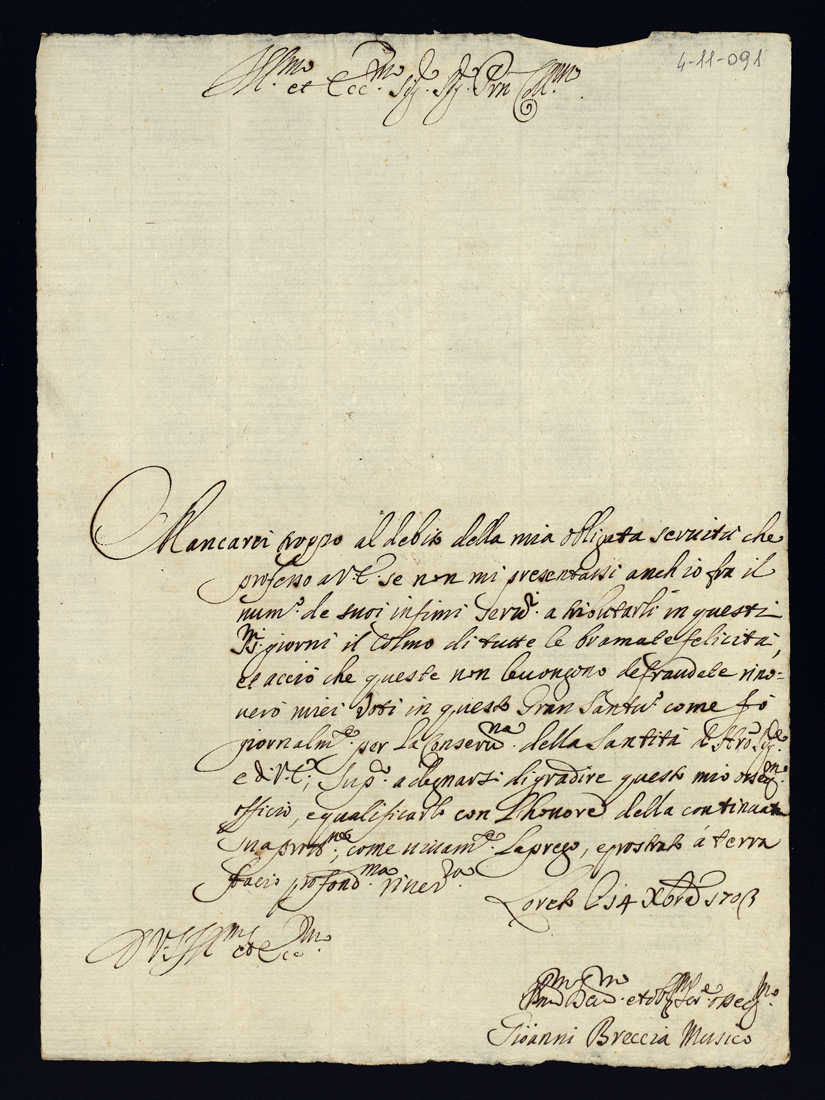 4-11-091
Ill.mo et Ecc.mo Sig.e Sig.e Prn Coll.mo
Mancarei troppo al debito della mia obligata seruitù che
professo a V.E. se non mi presentassi anch'io fra il
num.o de suoi infimi Seru.i a tributarli in questi
S.mi giorni il Colmo di tutte le bramate felicità,
et acciò che queste non venghono defraudate rino=
verò miei Voti in questo Gran Santu.o come fò
giornalm.e per la Conseru.na della Santità di Nro Sig.e
e di V.E.; Sup.a a degnarsi di gradire questo mio osseq.mo
officio, e qualificarlo con L'honore della continuata
Sua prot.ne, come uiuam.e La prego, e prostrato à terra
facio profond.ma riuer.za
Loreto li 14 Xbre 1703
D V.S. Ill.ma et Ecc.ma
Hum.mo Deu.mo et obl.mo Ser.e osseq.mo
Gioanni Breccia Musico